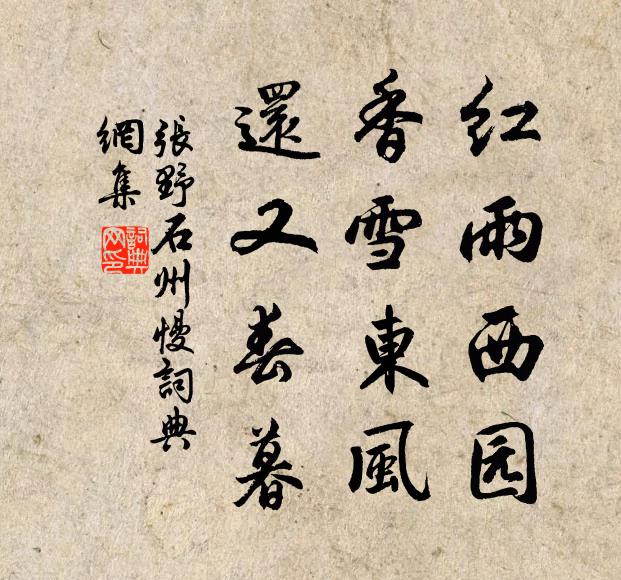 红雨西园
香雪東風
還又春暮
張野石州慢詞典
網集
詞典
网印